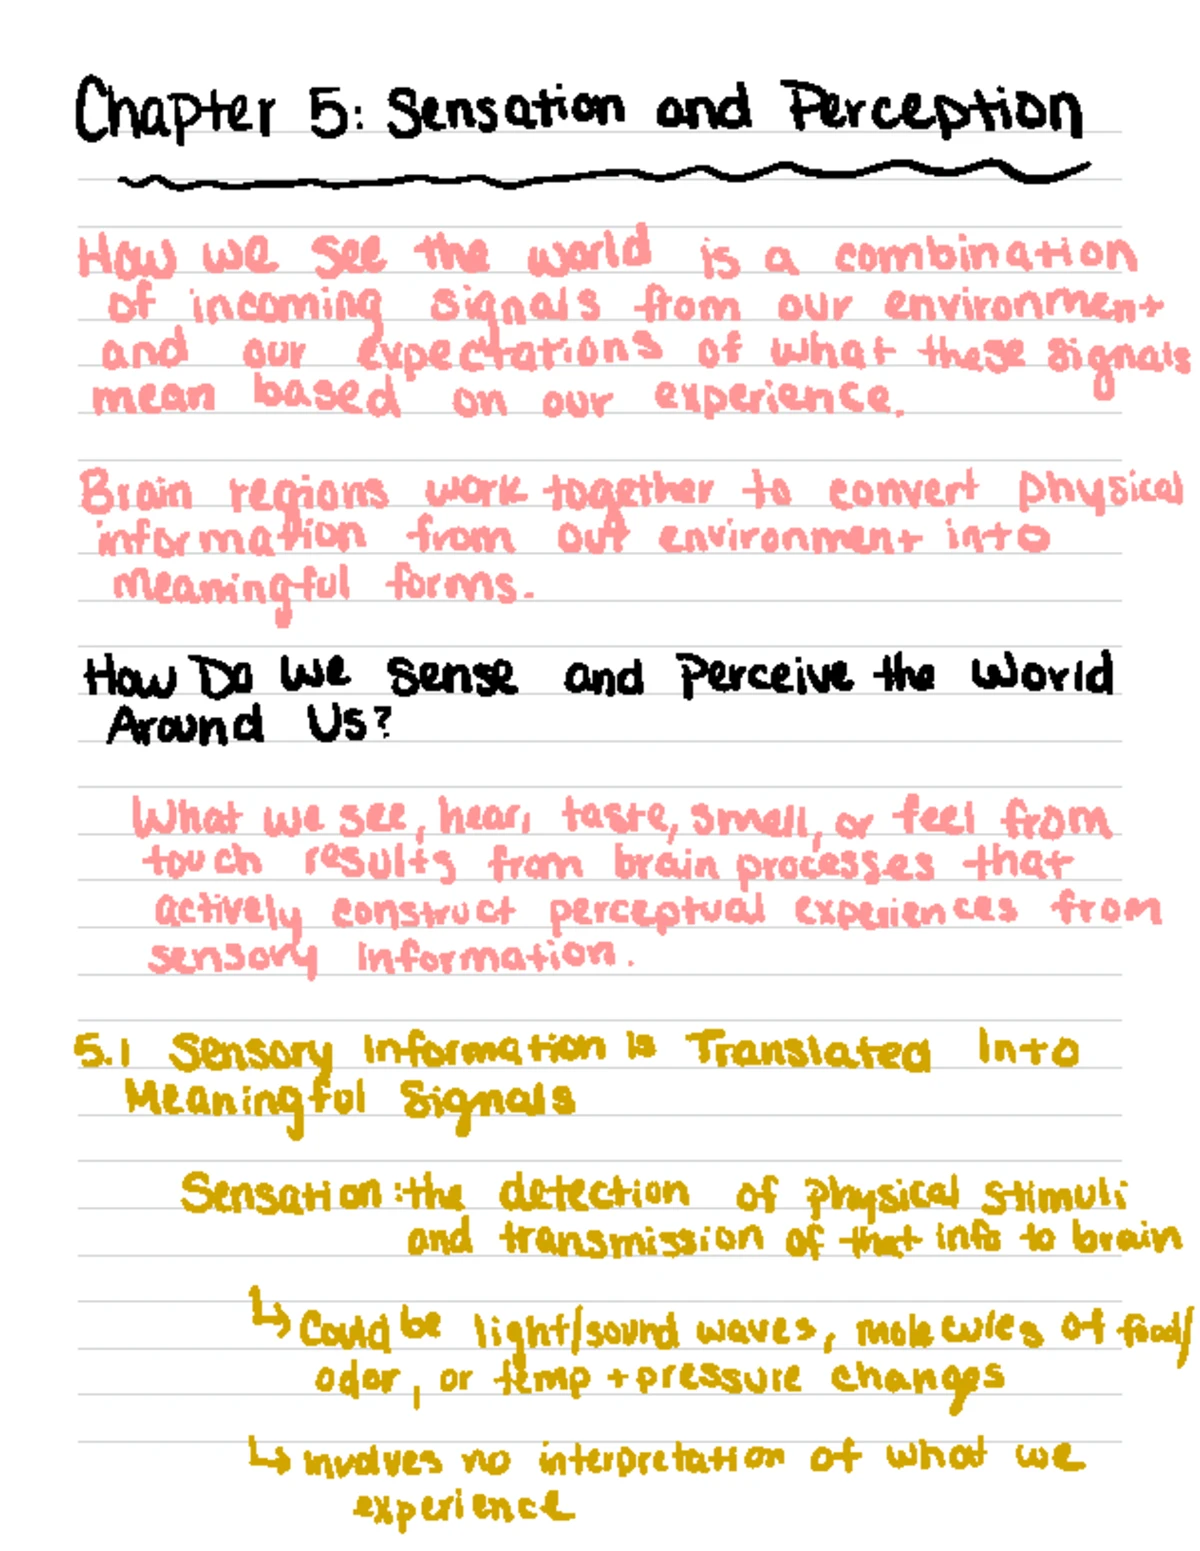 Chapter 5: Sensation and Perception
How we see the world is a combination
of incoming signals from our environment
and our expectations of what these signals
mean based on our experience.
Brain regions work together to convert physical
information from out environment into
meaningful forms.
How Do We Sense and Perceive the World
Around Us?
What we see, hear, taste, smell, or feel from
touch results from brain processes that
actively construct perceptual experiences from
sensory information.
5.1 Sensory Information is Translated Into
Meaningful Signals
Sensation: the detection of physical stimuli
and transmission of that info to brain
↳ Could be light/sound waves, molecules of food/
odor, or temp + pressure changes
↳ involves no interpretation of what we
experience